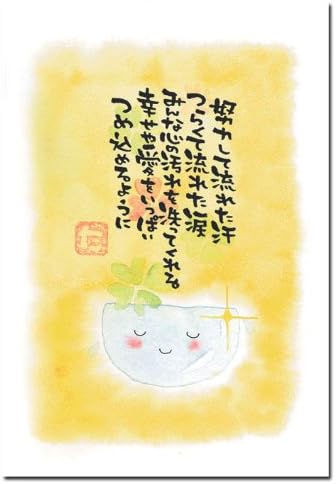 努力して流れた汗
つらくて流れた涙
みんな心の汚れを洗ってくれる。
幸せや愛をいっぱい
つめ込めるように